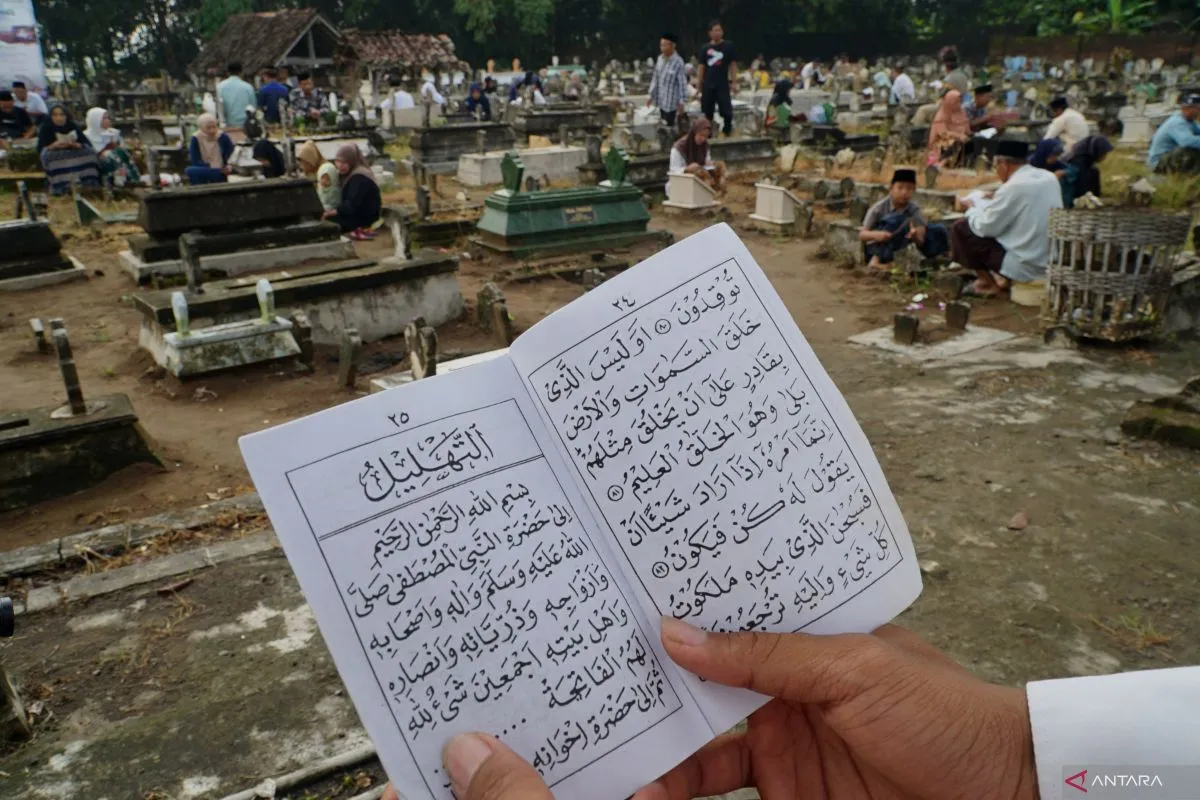 ٢٤
تُوْقِدُوْنَ ﴿٨٠﴾ اَوَلَيْسَ الَّذِيْ
خَلَقَ السَّمٰوَاتِ وَالْاَرْضَ
بِقَادِرٍ عَلٰى اَنْ يَخْلُقَ مِثْلَهُمْ
بَلٰى وَهُوَ الْخَلّٰقُ الْعَلِيْمُ ﴿٨١﴾
اِنَّمَآ اَمْرُهٗٓ اِذَآ اَرَادَ شَيْئًا اَنْ
يَقُوْلَ لَهٗ كُنْ فَيَكُوْنُ ﴿٨٢﴾
فَسُبْحٰنَ الَّذِيْ بِيَدِهٖ مَلَكُوْتُ
كُلِّ شَيْءٍ وَاِلَيْهِ تُرْجَعُوْنَ
٢٥
اَلتَّهْلِيْلُ
بِسْمِ اللهِ الرَّحْمٰنِ الرَّحِيْمِ
اِلٰى حَضْرَةِ النَّبِيِّ الْمُصْطَفٰى صَلَّى
اللهُ عَلَيْهِ وَسَلَّمَ وَاٰلِهٖ وَاَصْحَابِهٖ
وَاَزْوَاجِهٖ وَذُرِّيَّاتِهٖ وَاَنْصَارِهٖ
وَاَهْلِ بَيْتِهٖ اَجْمَعِيْنَ شَيْءٌ لِلّٰهِ
لَهُمُ الْفَاتِحَةُ ....
ثُمَّ اِلٰى حَضْرَةِ اِخْوَانِهٖ
ANTARA